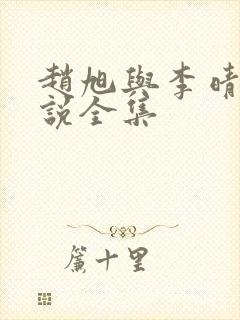 趙旭與李晴
説全集
簾十里